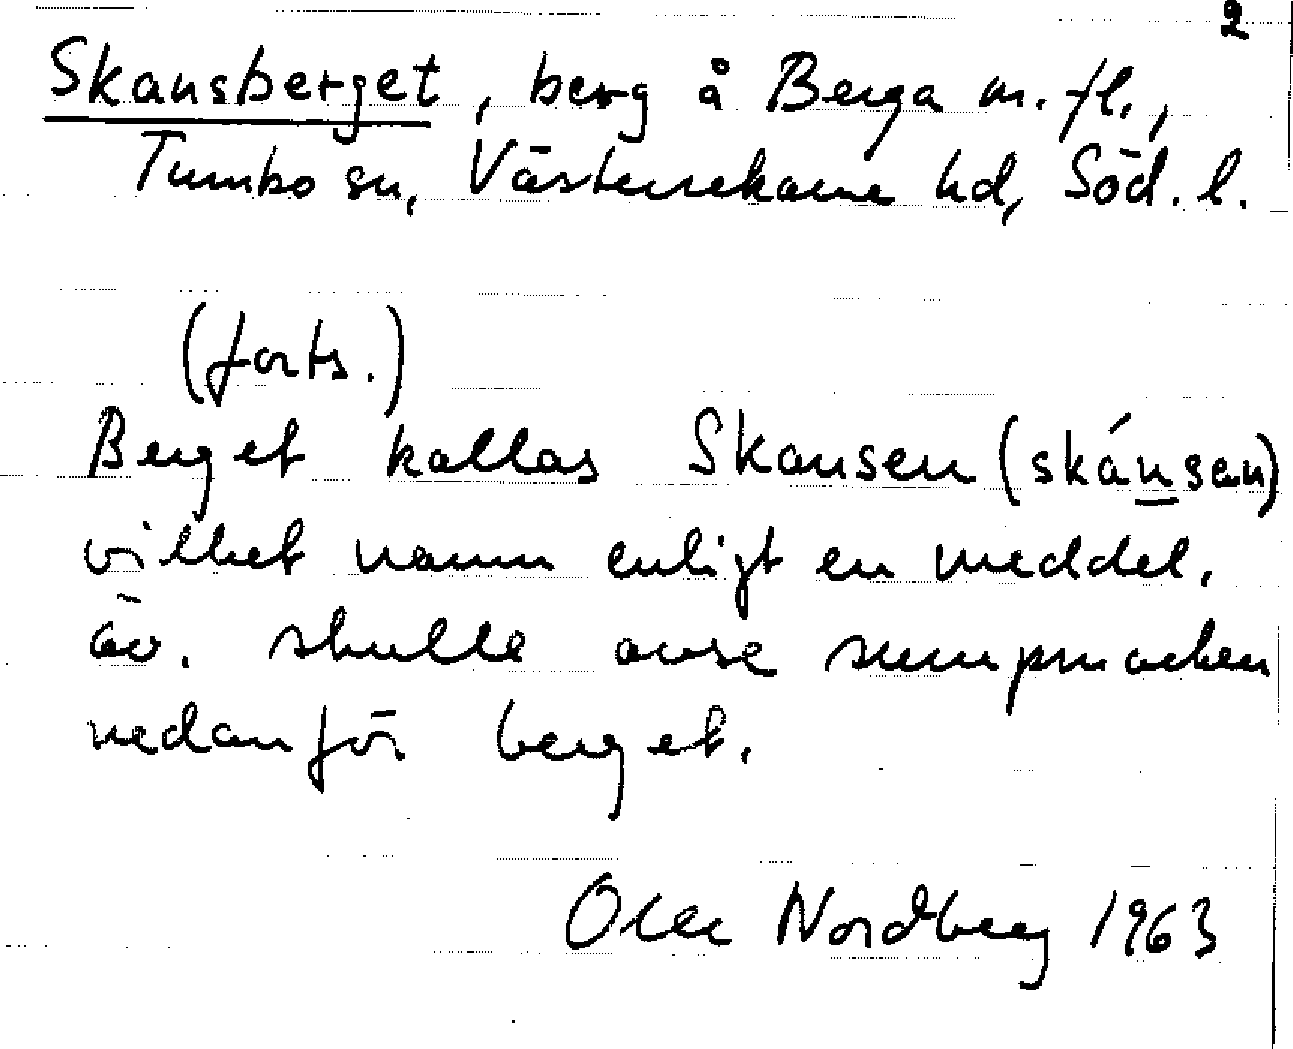 2
Skansberget, berg å Berga m. fl.,
Tumbo sn, Västerrekarne hd, Söd. l.
(forts.)
Berget kallas Skansen (skánsen)
vilket namn enligt en meddel.
äv. skulle avse sumpmarken
nedanför berget.
Olle Nordberg 1963